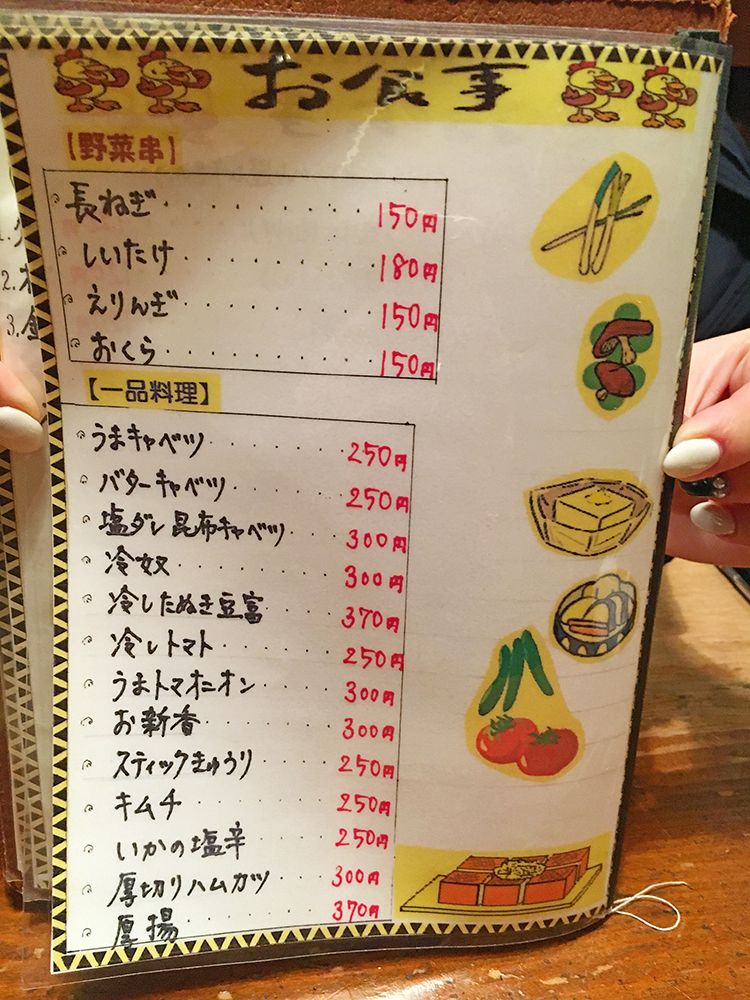 お食事
【野菜串】
長ねぎ 150円
しいたけ 180円
えりんぎ 150円
おくら 150円
【一品料理】
うまキャベツ 250円
バターキャベツ 250円
塩ダレ昆布キャベツ 300円
冷奴 300円
冷したぬき豆富 370円
冷しトマト 250円
うまトマオニオン 300円
お新香 300円
スティックきゅうり 250円
キムチ 250円
いかの塩辛 250円
厚切りハムカツ 300円
厚揚 370円
1.
2.
3.